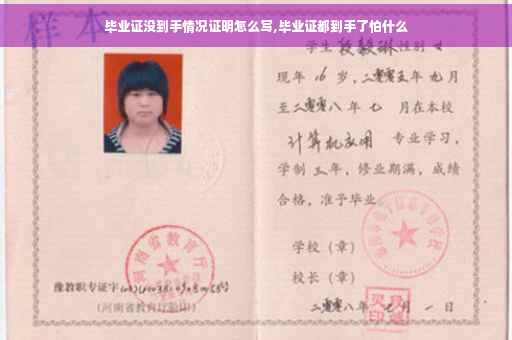 毕业证没到手情况证明怎么写,毕业证都到手了怕什么
样本
学生段毅琳性别女
现年16岁,二零零五年九月
至二零零八年七月在本校
计算机应用 专业学习,
学制三年,修业期满,成绩
合格,准予毕业
学校(章)
校长(章)
二零零八年 月一日
河南省教育厅
豫教职专证字
(河南省教育厅验印)